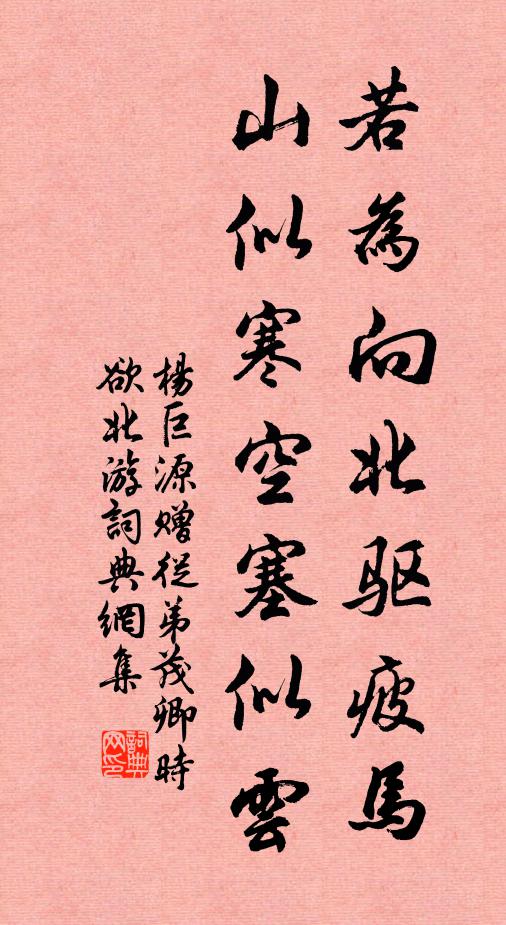 若為向北驱疲馬
山似寒空塞似雲
楊巨源赠從弟茂卿時
欲北游詞典網集
詞典
网印